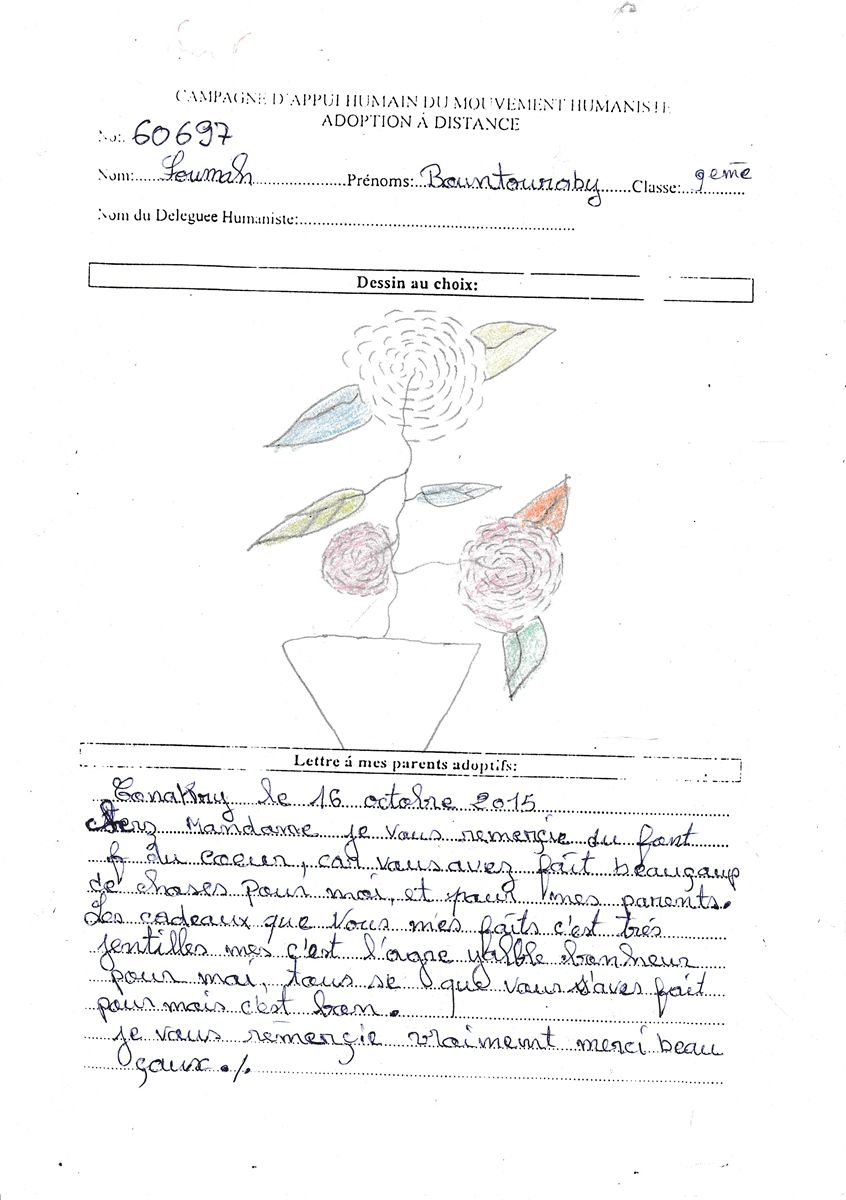 CAMPAGNE D'APPUI HUMAIN DU MOUVEMENT HUMANISTE
ADOPTION À DISTANCE
No:. 60697
Nom:......Soumah......Prénoms:..Bountouraby......Classe:..9eme
Nom du Deleguee Humaniste:......
Dessin au choix:
Lettre á mes parents adoptifs:
Conakry le 16 octobre 2015
Mandame je vous remerçie du font
du coeur, car vous avez fait beaugaup
de choses pour moi, et pour mes parents.
Les cadeaux que vous mes faits c'est trés
jentilles mes c'est bonheur
pour moi, tous se que vous s'aves fait
pour mais c'est bon.
je vous remerçie vraimemt merci beau
çaux ./.